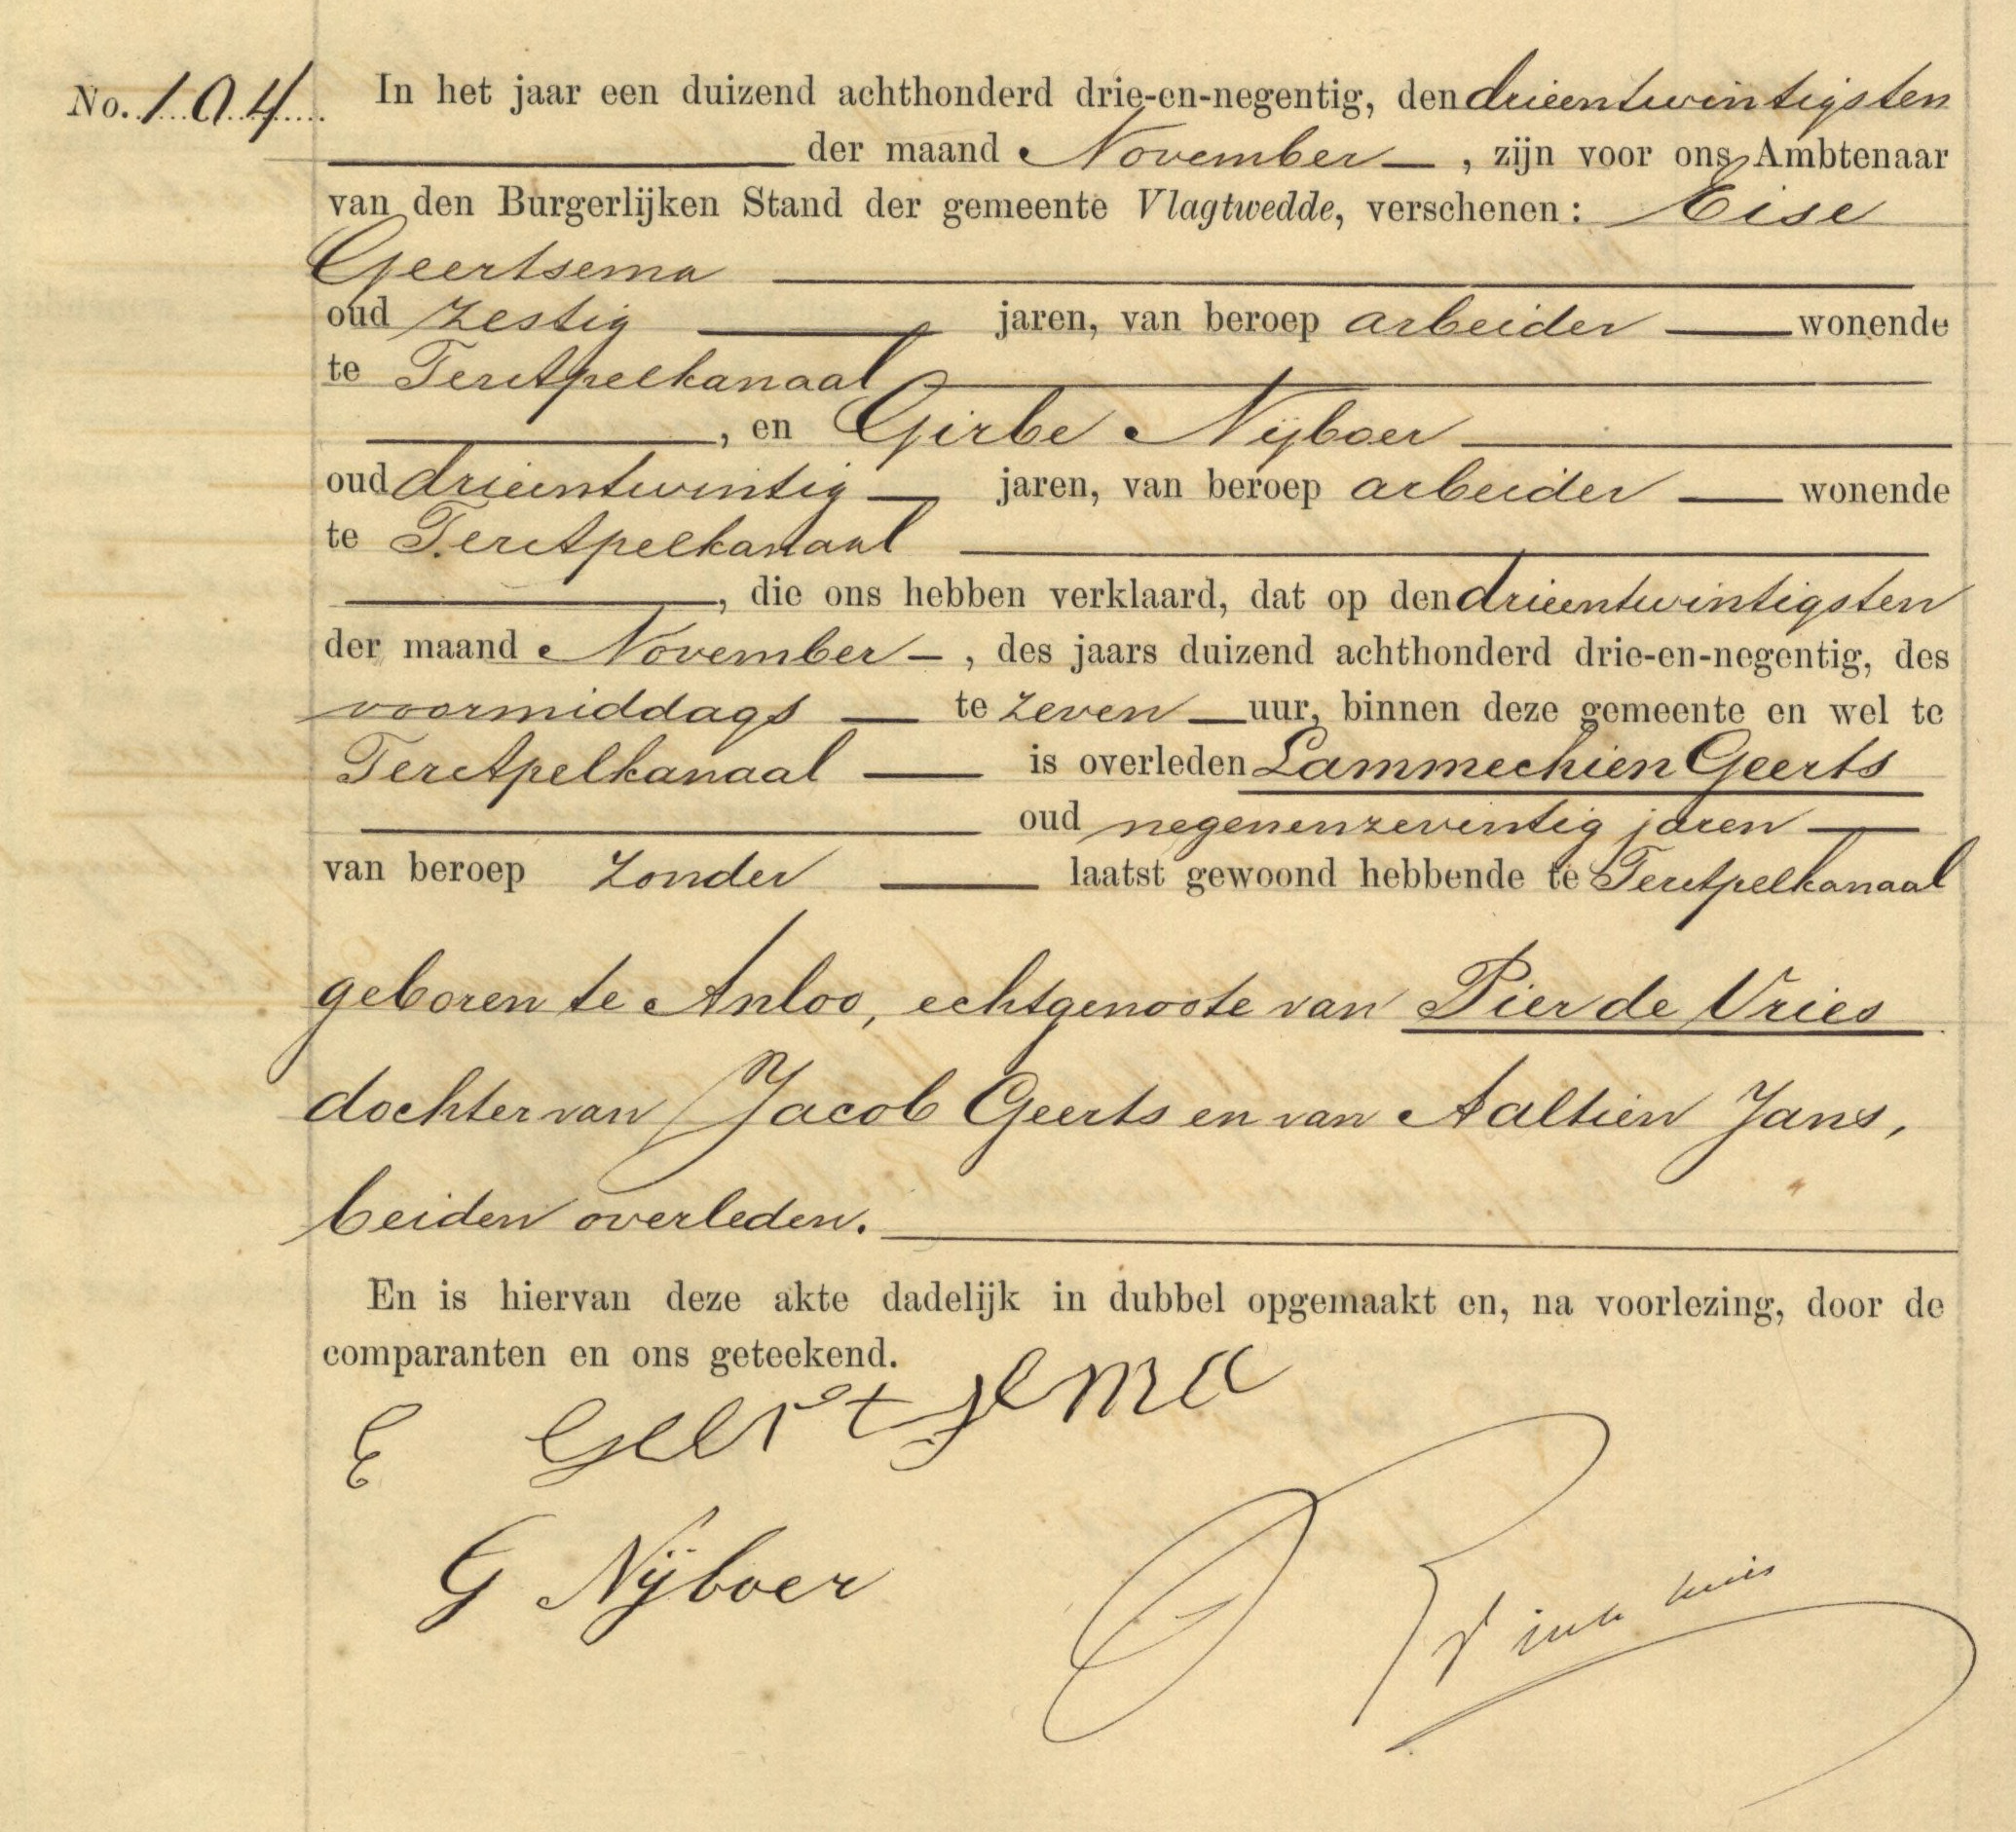 No. 104. In het jaar een duizend achthonderd drie-en-negentig, den drieentwintigsten
der maand November, zijn voor ons Ambtenaar
van den Burgerlijken Stand der gemeente Vlagtwedde, verschenen: Eise
Geertsema
oud zestig jaren, van beroep arbeider wonende
te TerApelkanaal
, en Girbe Nijboer
oud drieentwintig jaren, van beroep arbeider wonende
te TerApelkanaal
, die ons hebben verklaard, dat op den drieentwintigsten
der maand November, des jaars duizend achthonderd drie-en-negentig, des
voormiddags te zeven uur, binnen deze gemeente en wel te
TerApelkanaal is overleden Lammechien Geerts
oud negenenzeventig jaren
van beroep zonder laatst gewoond hebbende te TerApelkanaal
geboren te Anloo, echtgenoote van Pier de Vries
dochter van Jacob Geerts en van Aaltien Jans,
beiden overleden.
En is hiervan deze akte dadelijk in dubbel opgemaakt en, na voorlezing, door de
comparanten en ons geteekend.
E Geertsema
G Nijboer